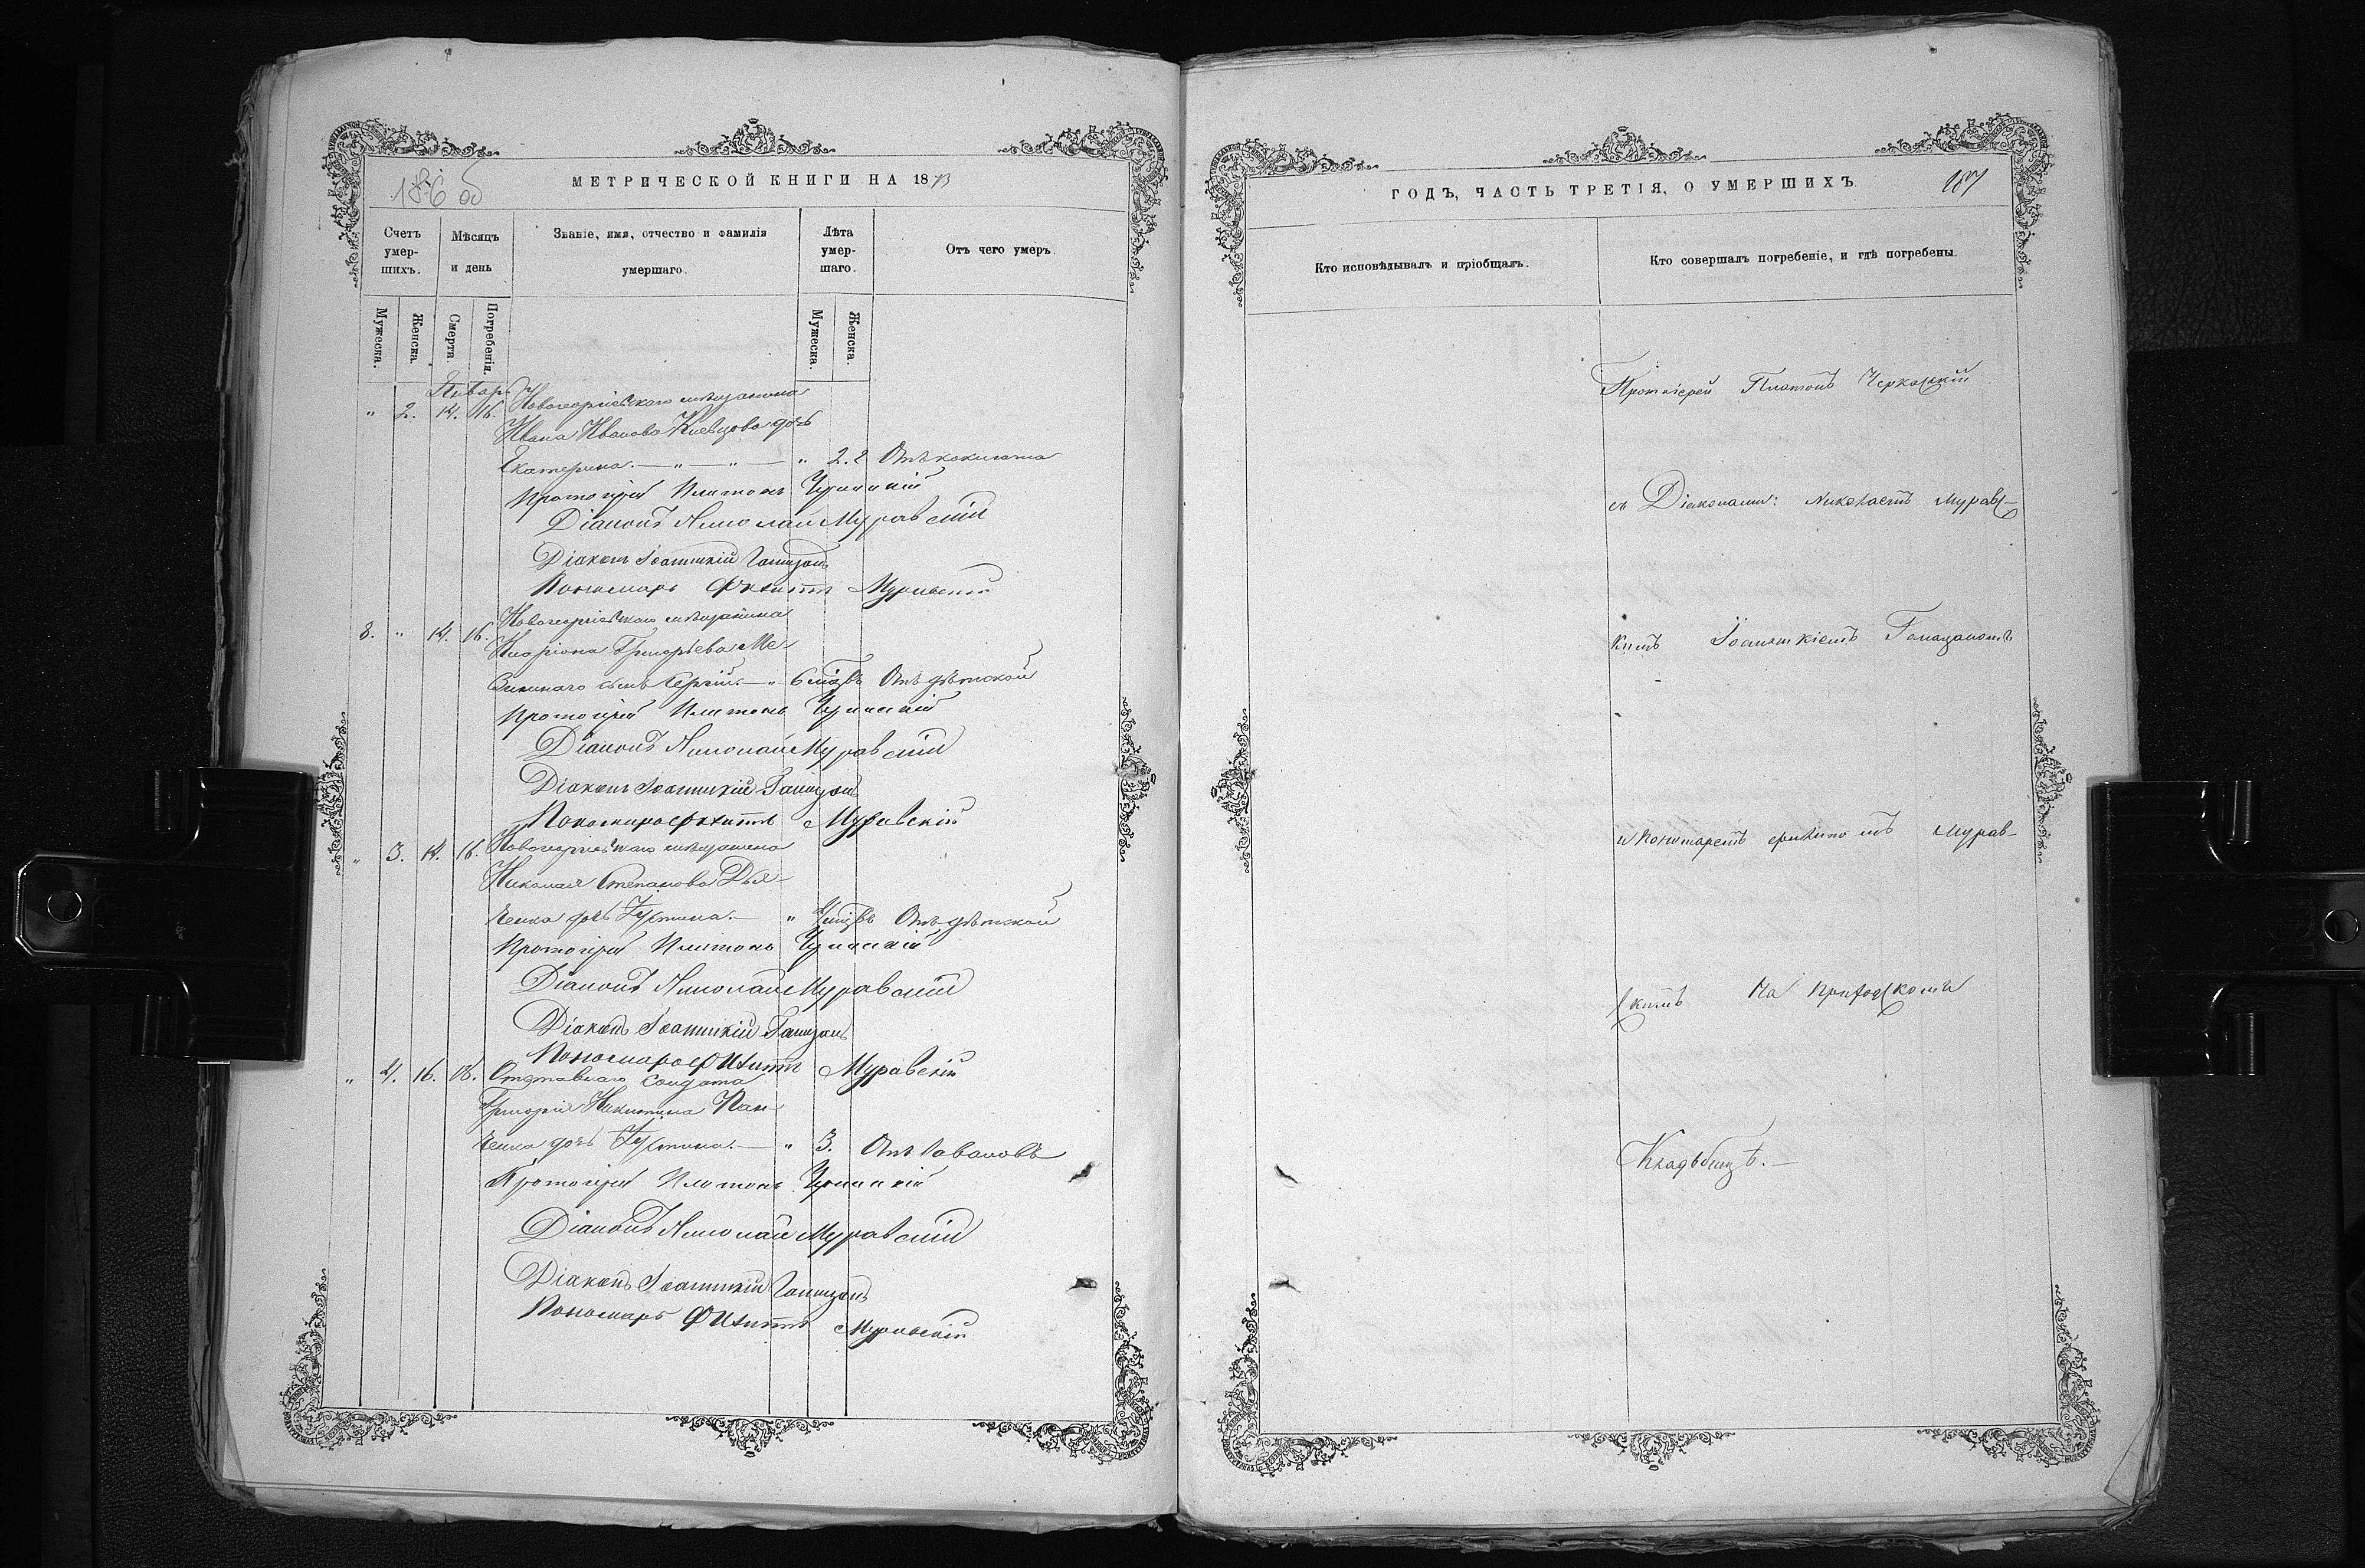 186 об
МЕТРИЧЕСКОЙ КНИГИ НА 1873
Счетъ умер-шихъ.
Мѣсяцъ и день
Званіе, имя, отчество и фамилія умершаго.
Лѣта умер-шаго.
Отъ чего умеръ.
Мужеска.
Женска.
Смерти.
Погребенія.
Мужеска.
Женска.
Январь
" 2. 14. 16. Новогеоргіевскаго мѣщанина
Ивана Иванова дочь
Екатерина. — " — " — " 2. Отъ коклюша
Протоіерей Платонъ Черкасскій
Діаконъ Николай Муравскій
Діаконъ Іоанникій Галщанъ
Пономарь Филиппъ Муравскій
8. " 14. 16. Новогеоргіевскаго мѣщанина
Иларіона Григорьева Ме-
сынъ Сергій. — " 6 мѣсяцъ Отъ дѣтской
Протоіерей Платонъ Черкасскій
Діаконъ Николай Муравскій
Діаконъ Іоанникій
Пономарь Филиппъ Муравскій
" 3. 14. 16. Новогеоргіевскаго мѣщанина
Николая Степанова Дья-
ченка дочь Іустина. — " Отъ дѣтской
Протоіерей Платонъ Черкасскій
Діаконъ Николай Муравскій
Діаконъ Іоанникій
Пономарь Филиппъ Муравскій
" 4. 16. 18. Отставнаго солдата
Григорія Никитина Пан-
ченка дочь Іустина. — " 3.
Протоіерей Платонъ Черкасскій
Діаконъ Николай Муравскій
Діаконъ Іоанникій
Пономарь Филиппъ Муравскій
ГОДЪ, ЧАСТЬ ТРЕТІЯ, О УМЕРШИХЪ.
187
Кто исповѣдывалъ и пріобщалъ.
Кто совершалъ погребеніе, и гдѣ погребены.
Протоіерей Платонъ Черкасскій
съ Діаконами: Николаемъ Муравс-
кимъ Іоанникіемъ
и Пономаремъ Филипомъ Мурав-
скимъ На Приходскомъ
Кладбищѣ. —